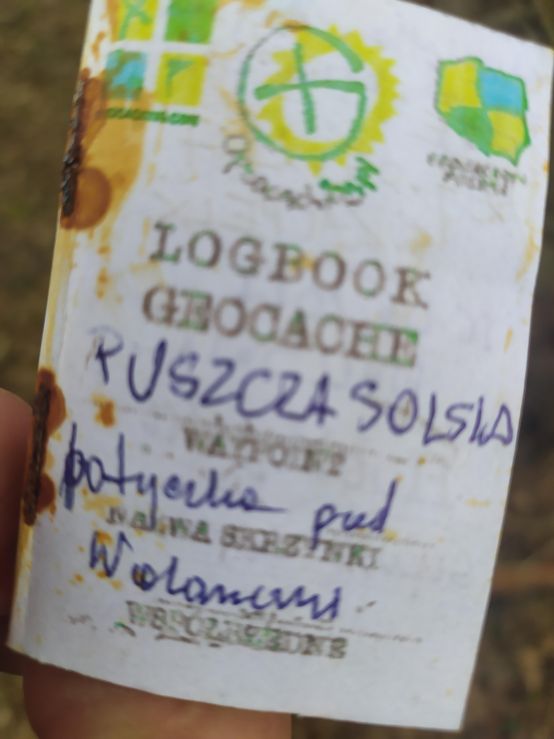 LOGBOOK
GEOCACHE
PUSZCZA SOLSKA
WAYPOINT
potyczka pod
NAZWA SKRZYNKI
WSPÓŁRZĘDNE